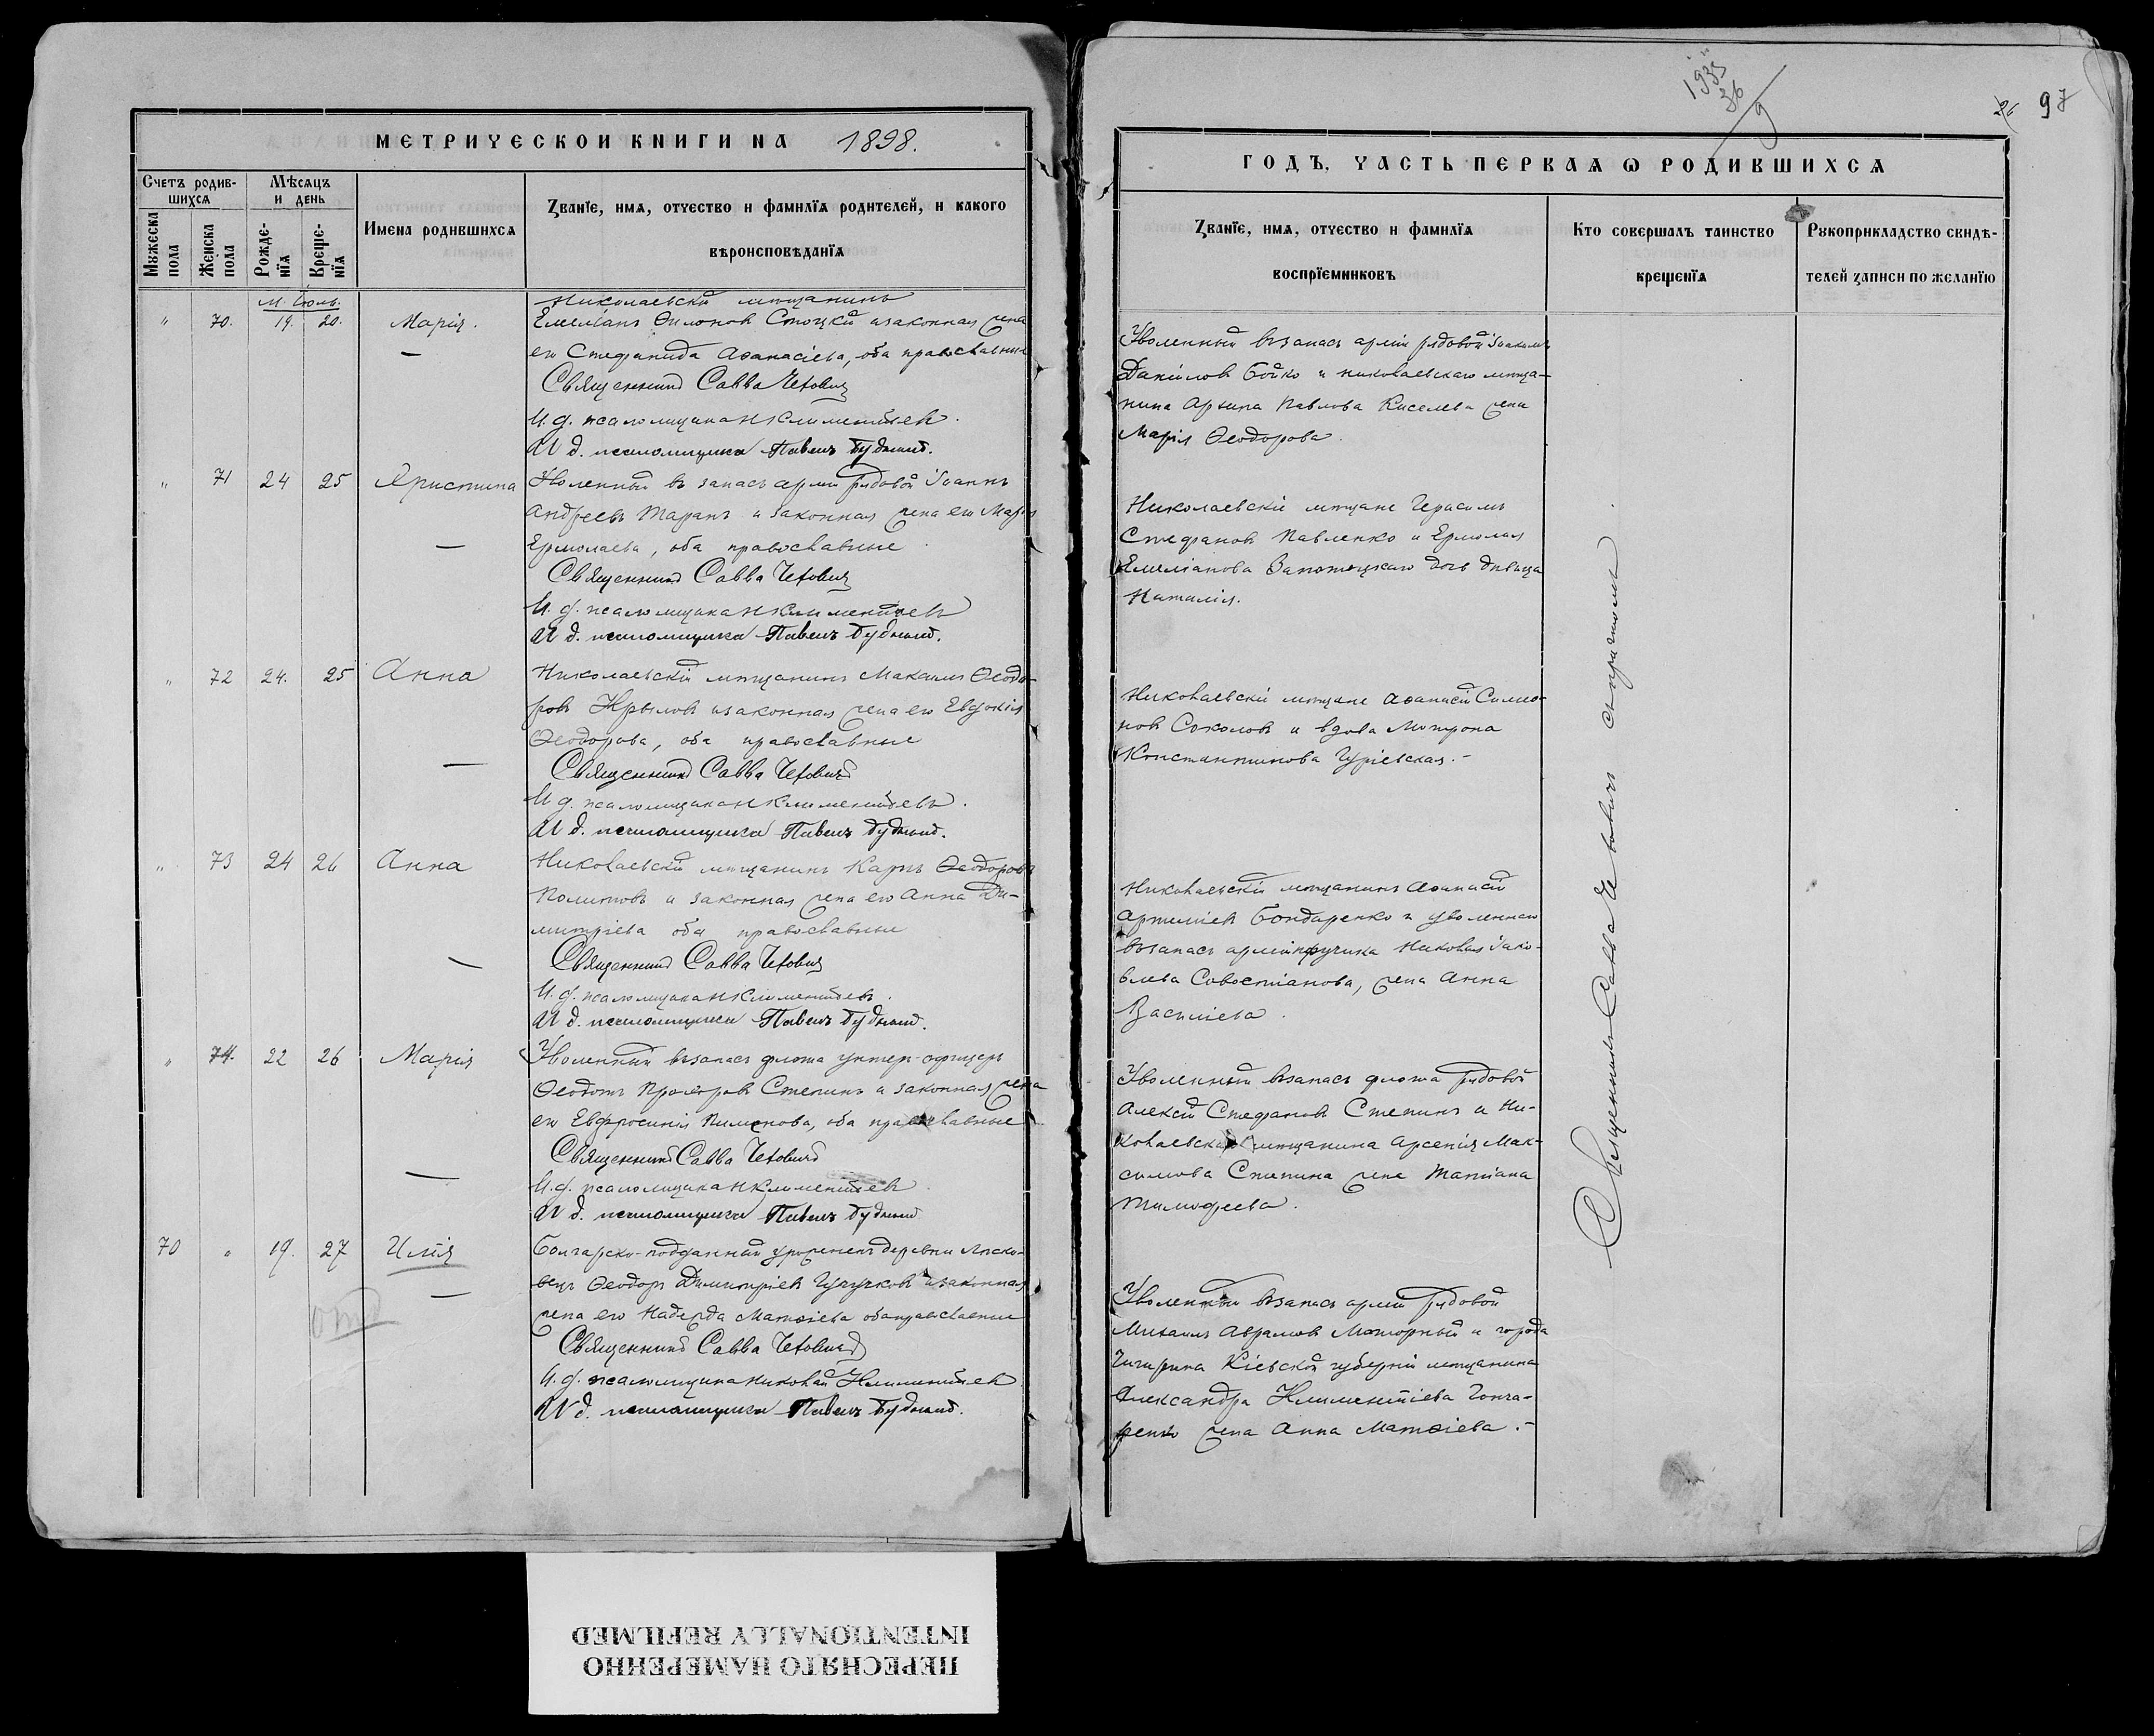 МЕТРИЧЕСКОЙ КНИГИ НА 1898.
Счетъ родив-
шихсѧ
Мѣсѧцъ
и день
Имена родившихсѧ
Званїе, имѧ, отчество и фамилїѧ родителей, и какого
вѣроисповѣданїѧ
Мужеска
пола
Женска
пола
Рожде-
нїѧ
Креще-
нїѧ
м. Iюль.
Николаевскій мѣщанинъ
" 70. 19. 20. Марія. Емеліанъ Ѳилоновъ Стоцкій и законная жена
его Стефанида Аѳанасіева, оба православные
Священникъ Савва
И. д. псаломщика Н Климентьевъ.
И д. псаломщика Павелъ
" 71 24 25 Христина Уволенный въ запасъ арміи рядовой Іоаннъ
Андреевъ Таранъ и законная жена его Марія
Ермолаева, оба православные
Священникъ Савва
И. д. псаломщика Н Климентьевъ
И д. псаломщика Павелъ
" 72 24. 25 Анна Николаевскій мѣщанинъ Максимъ Ѳеодо-
ровъ Крыловъ и законная жена его Евдокія
Ѳеодорова, оба православные
Священникъ Савва
И д. псаломщика Н Климентьевъ.
И д. псаломщика Павелъ
" 73 24 26 Анна Николаевскій мѣщанинъ Карпъ Ѳеодоровъ
Политовъ и законная жена его Анна Ди-
митріева оба православные
Священникъ Савва
И. д. псаломщика Н Климентьевъ.
И д. псаломщика Павелъ
" 74. 22 26 Марія Уволенный въ запасъ флота унтер-офицеръ
Ѳеодотъ Степинъ и законная жена
его Евфросинія Пименова, оба православные
Священникъ Савва
И. д. псаломщика Н Климентьевъ
И д. псаломщика Павелъ
70 " 19. 27 Илія Болгарско-подданный уроженецъ деревни Ляско-
вецъ Ѳеодоръ Димитріевъ и законная
жена его Надежда Матѳіева оба православные
Священникъ Савва
И. д. псаломщика Николай Климентьевъ
И д. псаломщика Павелъ
1935
36
9
26 97
ГОДЪ, ЧАСТЬ ПЕРВАѦ Ѡ РОДИВШИХСѦ
Званїе, имѧ, отчество и фамилїѧ
воспрїемниковъ
Кто совершалъ таинство
крещенїѧ
Рукоприкладство свидѣ-
телей записи по желанїю
Уволенный въ запасъ арміи рядовой Іоакимъ
Даніиловъ Бойко и николаевскаго мѣща-
нина Архипа Павлова Киселева жена
Марія Ѳеодорова.
Николаевскіе мѣщане Герасимъ
Стефановъ Павленко и Ермолая
Емеліанова дочь дѣвица
Наталія.
Николаевскіе мѣщане Аѳанасій Симео-
новъ Соколовъ и вдова Матрона
Константинова Гуріевская.-
Николаевскій мѣщанинъ Аѳанасій
Артеміевъ Бондаренко и уволеннаго
въ запасъ арміи Николая Іако-
влева Савостіанова, жена Анна
Василіева.
Уволенный въ запасъ флота рядовой
Алексій Стефановъ Степинъ и Ни-
колаевскаго мѣщанина Арсенія Мак-
симова Степина жена Татіана
Тимофеева.
Уволенный въ запасъ арміи рядовой
Михаилъ Аврамовъ Моторный и города
Чигирина Кіевской губерніи мѣщанина
Александра Климентіева Гонча-
ренко жена Анна Матѳіева.-
Священникъ Савва съ причтомъ
ПЕРЕСНЯТО НАМЕРЕННО
INTENTIONALLY REFILMED